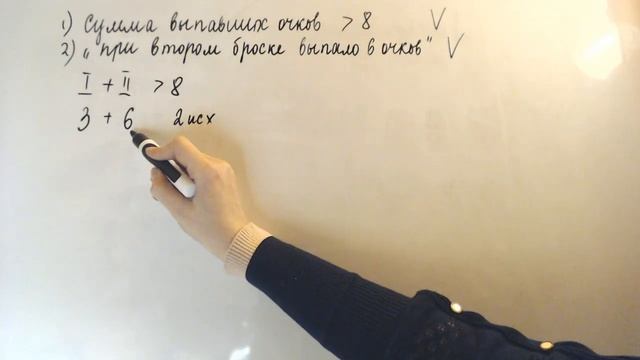 1) Сумма выпавших очков > 8 V
2) „при втором броске выпало 6 очков" V
I + II > 8
3 + 6 2 исх